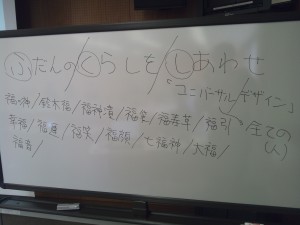 ふだんの/くらしを/しあわせ
「ユニバーサル/デザイン」
福の神/鈴木福/福神漬/福笹/福寿草/福引
全ての人)
幸福/福豆/福笑/福顔/七福神/大福/
福音/